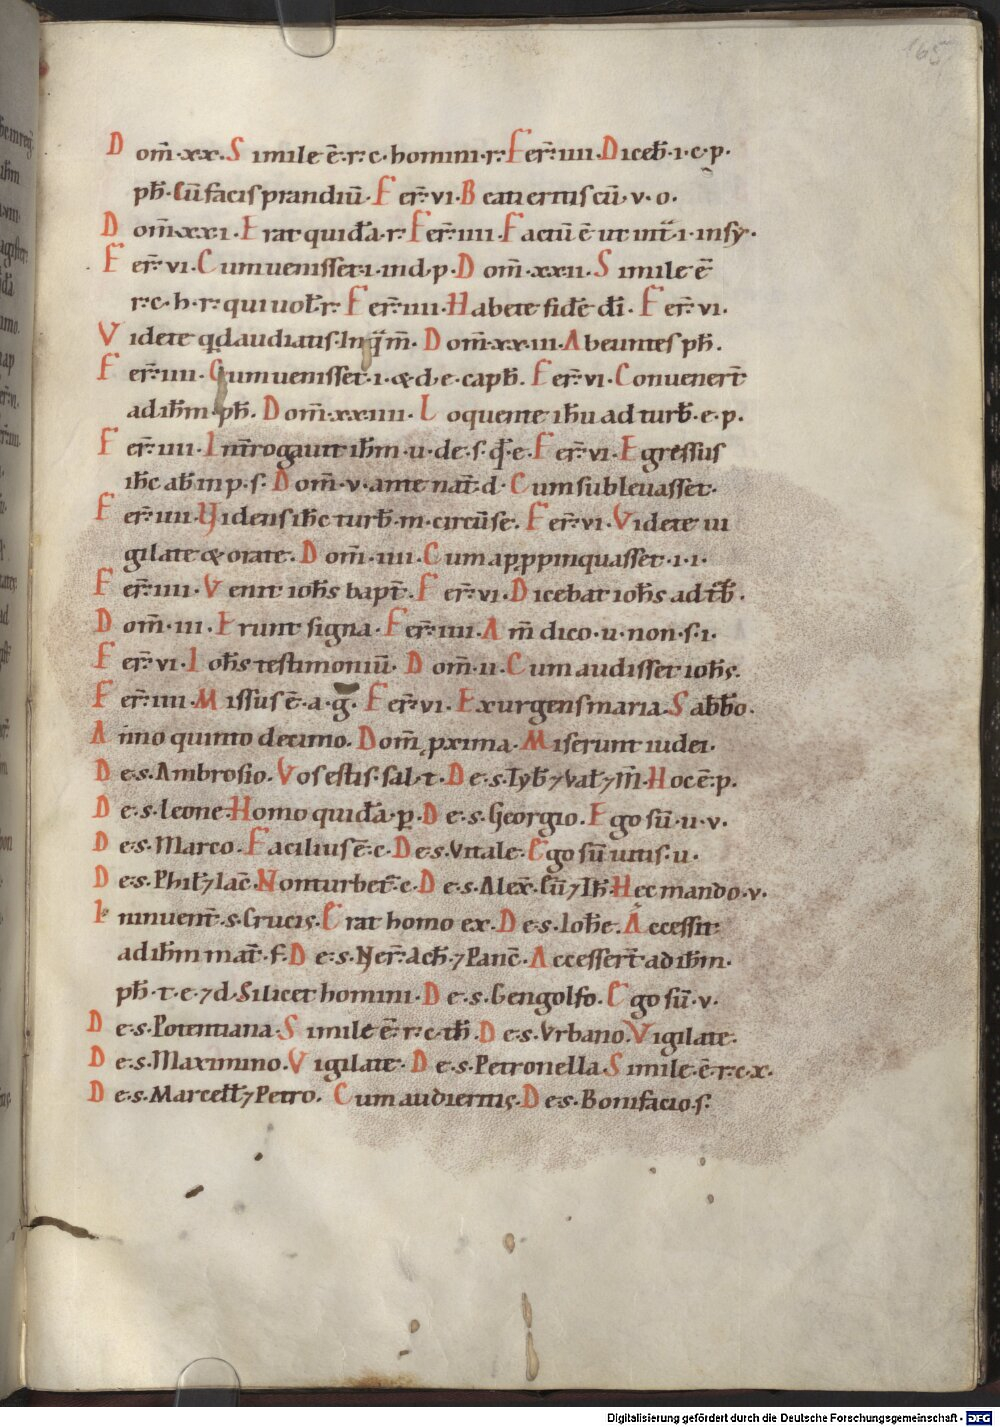 165
Dom̄·xx·Simile ē·r·c·homini·r·Fer̄·iiii·Diceb̄·i·c·p·
ph̄·Cū facis prandiū·Fer̄·vi·Beati eritis cū·v·o·
Dom̄·xxi·Erat quidā·r·Fer̄·iiii·Factū ē ut int̄·i·in sy·
Fer̄·vi·Cum uenisset·i·in d·p·Dom̄·xxii·Simile ē
r·c·h·r·qui uol̄·r·Fer̄·iiii·Habete fidē dī·Fer̄·vi·
Videte qd audiatis·In q̄ m̄·Dom̄·xxiii·Abeuntes ph̄·
Fer̄·iiii·Cum uenisset·i·&·d·e·caph̄·Fer̄·vi·Conuener̄t
ad ih̄m·ph̄·Dom̄·xxiiii·Loquente ih̄u ad turb̄·e·p·
Fer̄·iiii·Int̄rogauit ih̄m·u·de·s·q̄·e·Fer̄·vi·Egressus
ih̄c ab̄ in p·s·Dom̄·v·ante nat̄·d·Cum subleuasset·
Fer̄·iiii·Videns ih̄c turb̄·m·circū se·Fer̄·vi·Videte ui
gilate & orate·Dom̄·iiii·Cum appropinquasset·i·i·
Fer̄·iiii·Venit ioh̄s bapt̄·Fer̄·vi·Dicebat ioh̄s ad tb̄·
Dom̄·iii·Erunt signa·Fer̄·iiii·Am̄ dico·u·non·s·i·
Fer̄·vi·Ioh̄s testimoniū·Dom̄·ii·Cum audisset ioh̄s·
Fer̄·iiii·Missus ē·a·g̅·Fer̄·vi·Exurgens maria·Sabb̄o·
Anno quinto decimo·Dom̄ pxima·Miserunt iudei·
De·s·Ambrosio·Vos estis·sal·t·De·s·Tyb̄⁊Val̄⁊M̄·Hoc ē·p·
De·s·Leone·Homo quidā·p·De·s·Georgio·Ego sū·u·v·
De·s·Marco·Facilius ē·c·De·s·Vitale·Ego sū uitis·u·
De·s·Phil̄⁊Iac̄·Non turbet̄·c·De·s·Alex̄·Eū⁊Th̄·Hec mando·v·
In inuent̄·s·Crucis·Erat homo ex·De·s·Ioh̄e·Accessit
ad ih̄m mat̄·f·De·s·Ner̄·Ach̄·⁊Panc̄·Accesser̄t ad ih̄m·
ph̄·t·e·⁊d·Si licet homini·De·s·Gengolfo·Ego sū·v·
De·s·Potentiana·Simile ē·r·c·th̄·De·s·Vrbano·Vigilate·
De·s·Maximino·Vigilate·De·s·Petronella·Simile·ē·r·c·x·
De·s·Marcell̄⁊Petro·Cum audieritis·De·s·Bonifacio·s·
Digitalisierung gefördert durch die Deutsche Forschungsgemeinschaft - DFG